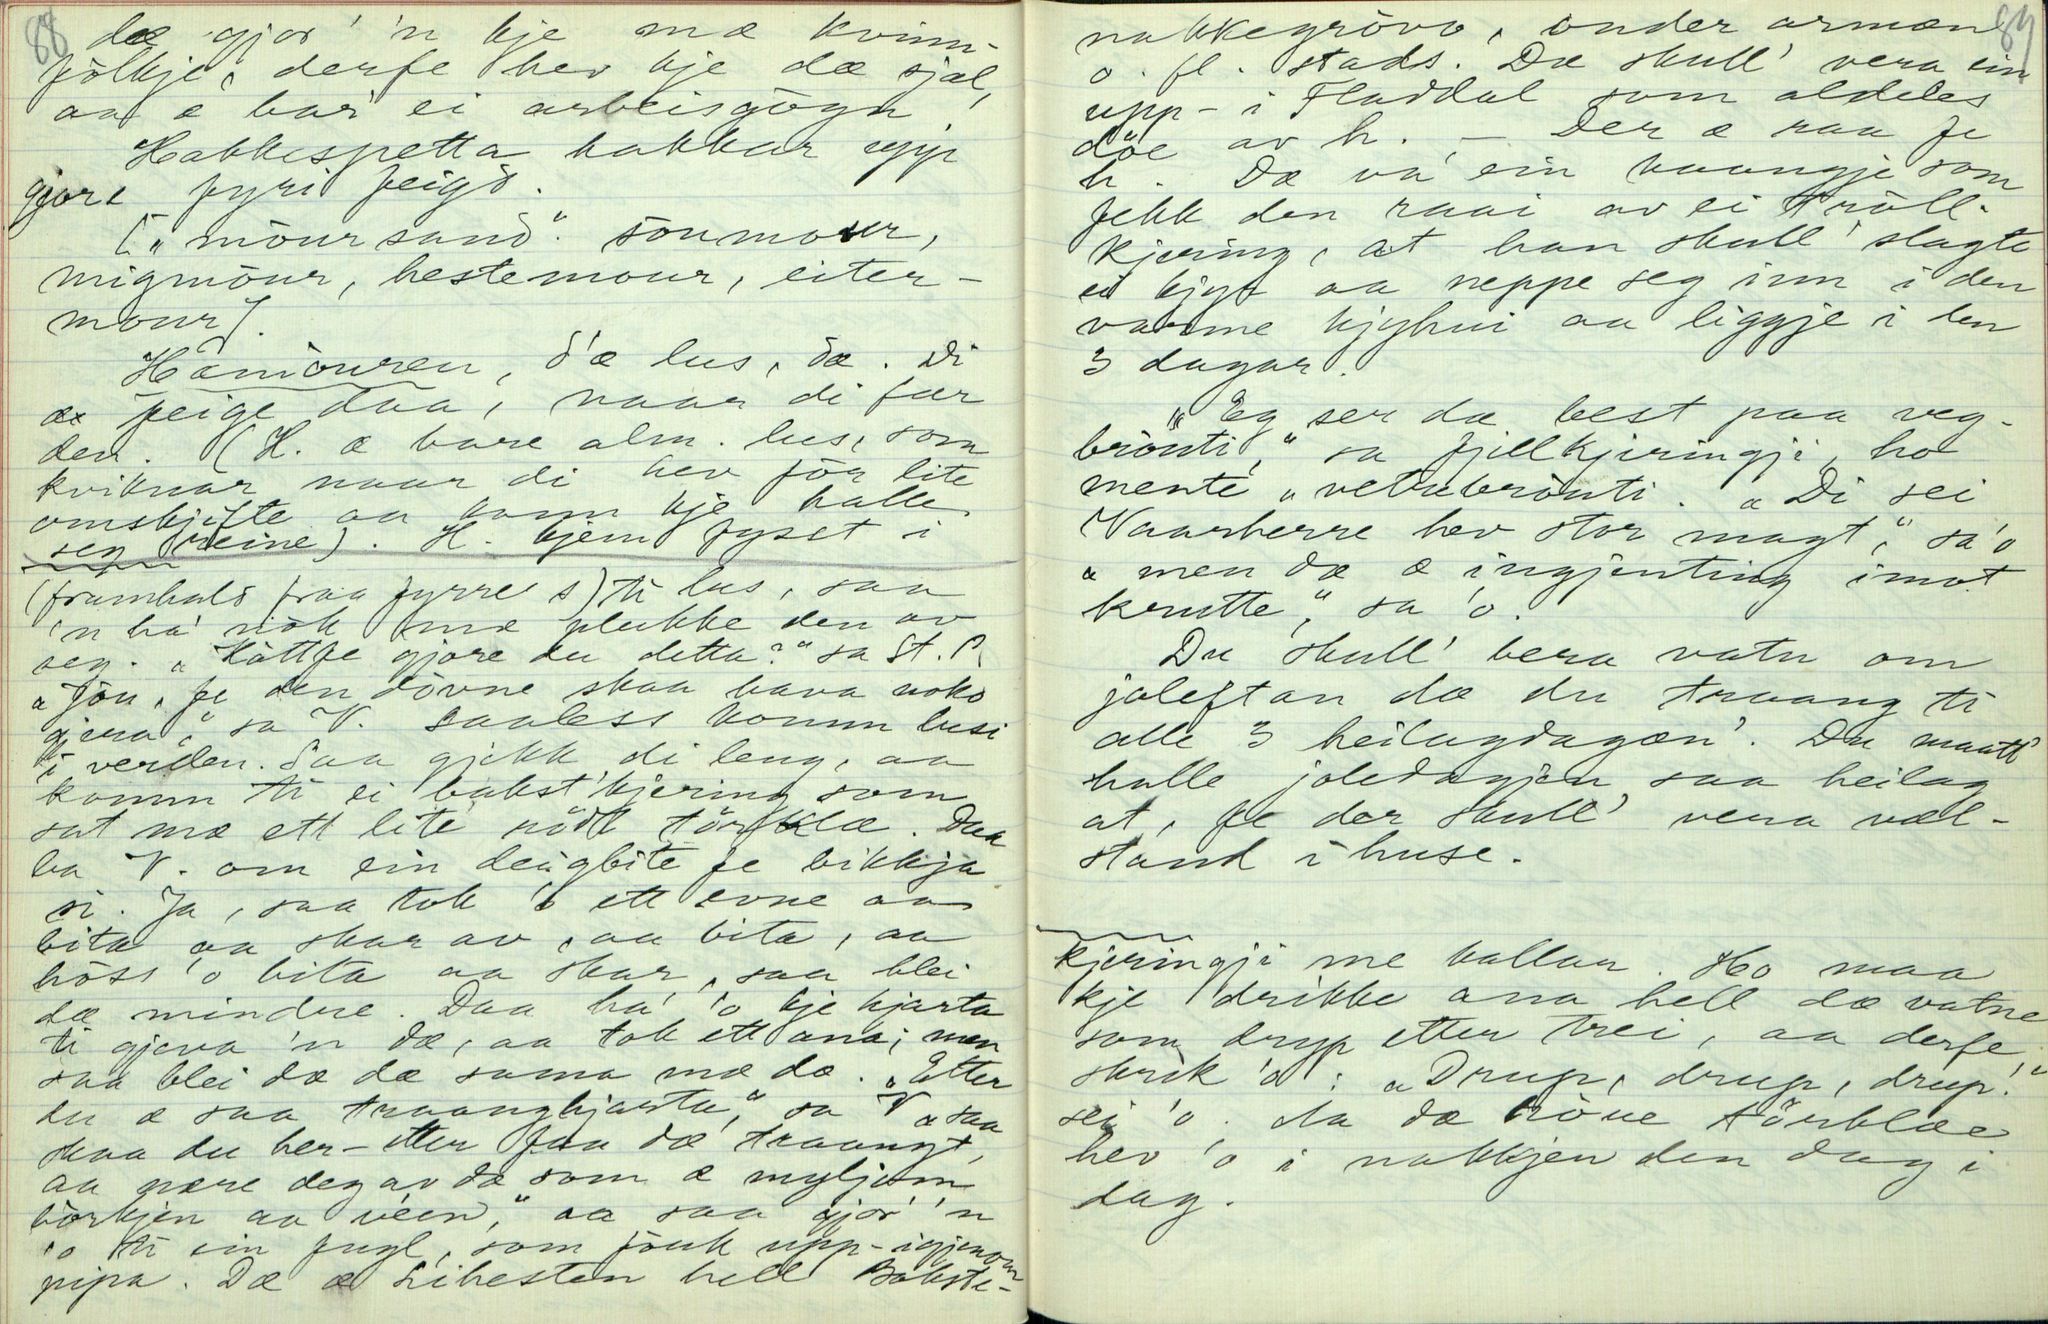 88
dæ gjor' 'n kje mæ kvinn-
fölkje, derfe hev kje dæ sjæl,
aa æ bar' ei arbeisgögn.
Hakkespetta hakkar upp
gjore fyri feigd.
[„möursand“. sönmour,
migmöur, hestemour, eiter-
mour].
Hämöuren, d'æ lus, dæ. Di
æ feige daa, naar di fær
den. (H. æ bare alm. lus, som
kviknar naar di hev för lite
omskjifte aa kann kje halle
seg reine). H. kjem fyset i
(framhald fraa fyrre s) ti lus, saa
'n ha' nok mæ plukke den av
seg. „Kåttfe gjore du detta?“ sa St. P.
„Jöu, fe den dövne skaa hava noko
gjera“, sa V. Saaless komm lusi
i verden. Saa gjekk di leng, aa
komm ti ei bakst'kjering som
sat mæ ett lite rödt törklæ. Daa
ba V. om ein deigbite fe bikkja
si. Ja, saa tok 'o ett evne aa
bita aa skar av, aa bita, aa
höss 'o bita aa skar, saa blei
dæ mindre. Daa ha' 'o kje hjarta
ti gjeva 'n dæ, aa tok ett ana; men
saa blei dæ dæ sama mæ dæ. „Etter
du æ saa traanghjarta“, sa V „saa
skaa du her-etter faa dæ traangt,
aa nære deg av dæ som æ myljom
börkjen aa veen“, aa saa gjor' 'n
'o ti ein fugl, som föuk upp-igjenom
pipa. Dæ æ Lihesten hell Bakste-
89
nakkegröva, onder armæn
o. fl. stads. Dæ skull' vera ein
upp-i Fladdal som aldeles
döe av h. – Der æ raa fe
h. Dæ va' ein kaangje som
fekk den raai av ei tröll-
kjering, at han skull' slagte
ei kjyr aa neppe seg inn i den
varme kjyhui aa liggje i den
3 dagar.
„Eg ser dæ best paa veg-
brönti,“ sa fjellkjeringji, ho
mente „vetrebrönti. „Di sei
Vaarherre hev stor magt,“ sa'o
„men dæ æ ingjenting imot
krutte,“ sa 'o.
Du skull' bera vatn om
joleftan dæ du traang ti
alle 3 heilagdagæn'. Du maatt'
halle joledagjen saa heilag
at, fe der skull' vera vel-
stand i huse.
kjeringji me kallar. Ho maa
kje drikke ana hell dæ vatne
som dryp etter trei, aa derfe
skrik 'o: „Drup, drup, drup!“
sei 'o. Aa dæ röue törklæe
hev 'o i nakkjen den dag i
dag.